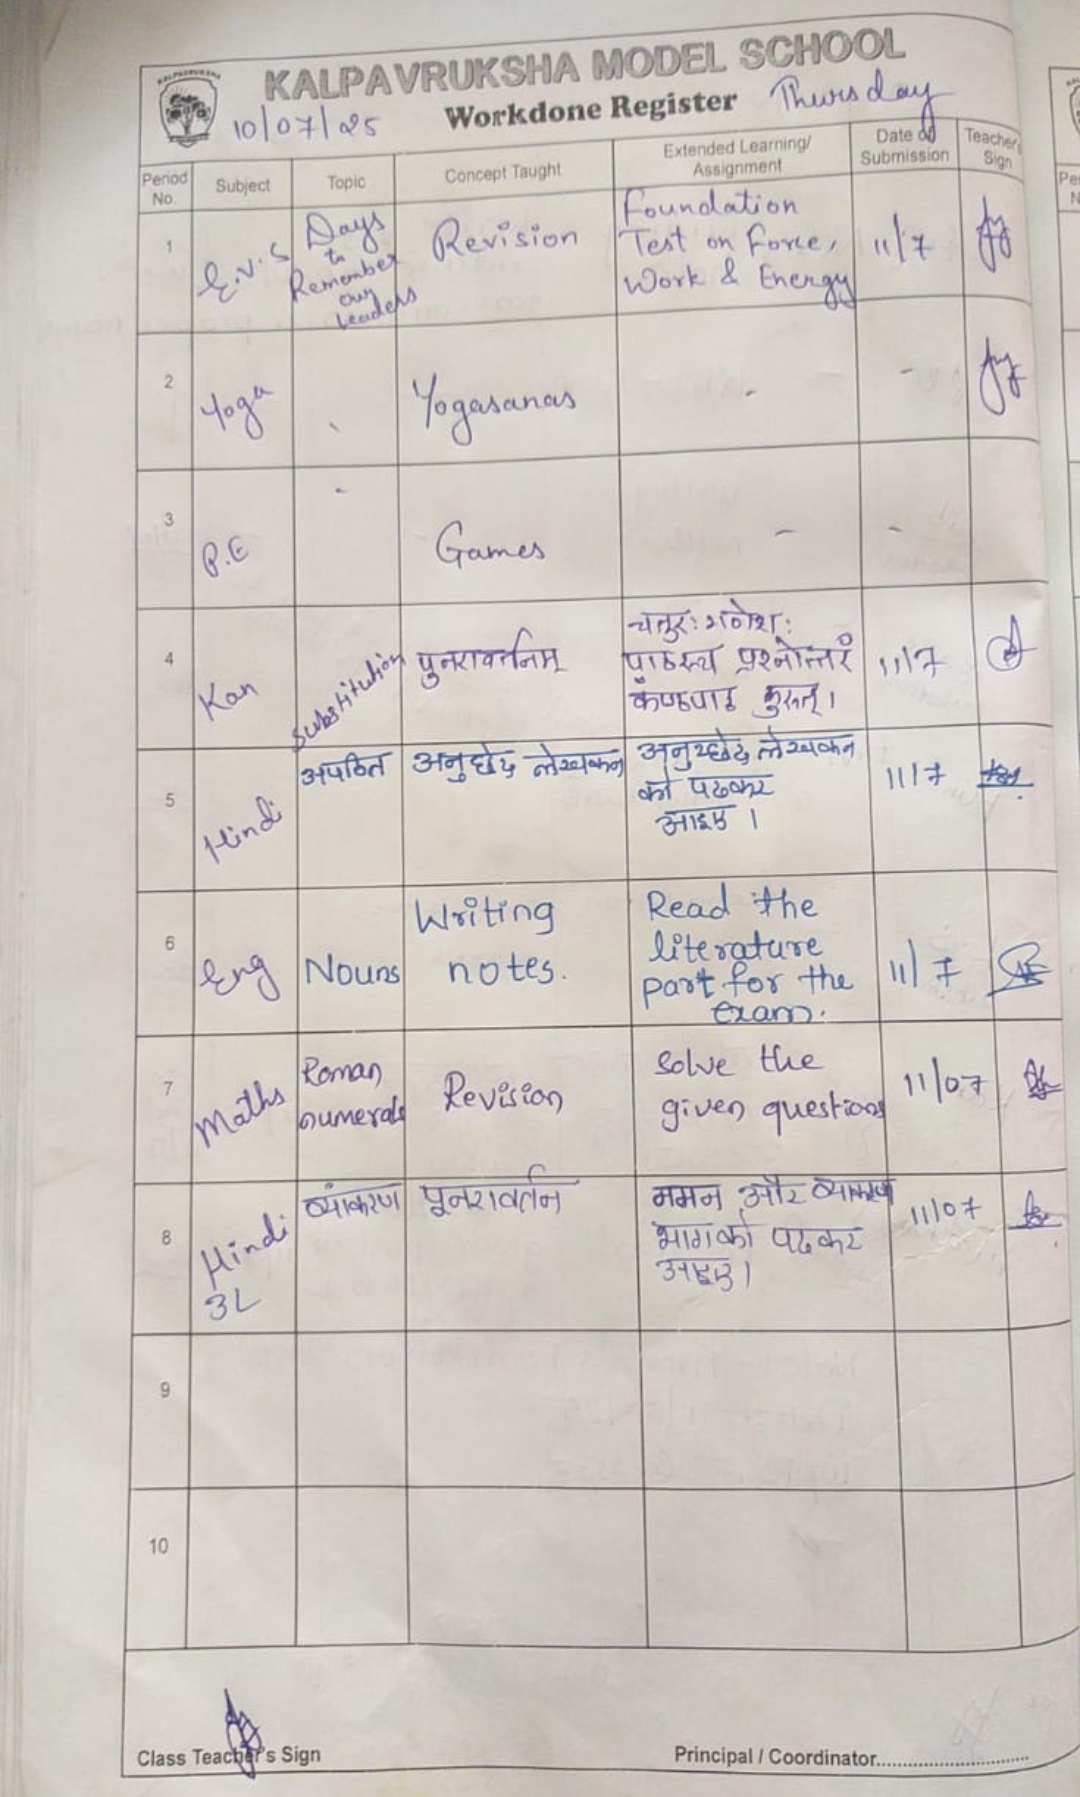 KALPAVRUKSHA MODEL SCHOOL
10/07/25 Workdone Register Thursday
Period No. Subject Topic Concept Taught Extended Learning/ Assignment Date of Submission Teacher's Sign
1 E.V.S Days to Remember our Leaders Revision Foundation Test on Force, Work & Energy 11/7
2 Yoga - Yogasanas - -
3 P.E - Games - -
4 Kan Substitution पुनरावर्तनम् चतुरः गणेशः पाठस्य प्रश्नोत्तरं कंण्ठपाठ कुरुत्।
11/7
5 Hindi अपठित अनुछेद लेखकन अनुच्छेद लेखकन को पढकर आइए। 11/7
6 Eng Nouns Writing notes. Read the literature part for the exam. 11/7
7 Maths Roman numerals Revision Solve the given questions 11/07
8 Hindi 3L व्यांकरण पूनरावर्तन नमन और व्याकरण भाग को पढकर आइए। 11/07
9
10
Class Teacher's Sign Principal / Coordinator..............................